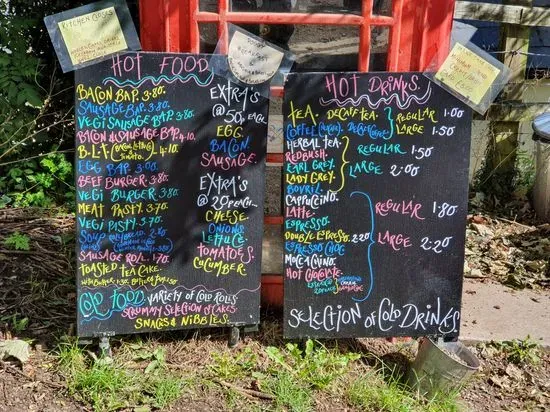 KITCHEN CLOSES
HOT FOOD
BACON BAP. 3.80.
SAUSAGE BAP. 3.80.
VEGI SAUSAGE BAP. 3.80.
BACON & SAUSAGE BAP. 4.10.
B.L.T 4.10.
EGG BAP. 3.00
BEEF BURGER 3.80.
VEGI BURGER 3.80
MEAT PASTY. 3.70.
VEGI PASTY. 3.70
SAUSAGE ROLL. 1.70
TOASTED TEA CAKE.
EXTRA'S
@ 50p EACH.
EGG.
BACON.
SAUSAGE.
EXTRA'S
@ 20p EACH.
CHEESE.
ONIONS
LETTUCE.
TOMATOES.
CUCUMBER.
COLD FOOD. VARIETY OF COLD ROLLS
SCRUMMY SELECTION OF CAKES.
SNACKS & NIBBLES.
HOT DRINKS.
TEA. DECAF TEA.
COFFEE
REGULAR 1.00
LARGE 1.50
HERBAL TEA
REDBUSH.
EARL GREY.
LADY GREY.
BOVRIL.
REGULAR 1.50
LARGE 2.00
CAPPUCCINO.
LATTE.
ESPRESSO.
DOUBLE ESPRESSO. 2.20
ESPRESSO CHOC
MOCCACINO.
HOT CHOCOLATE.
REGULAR 1.80
LARGE 2.20
SELECTION OF COLD DRINKS